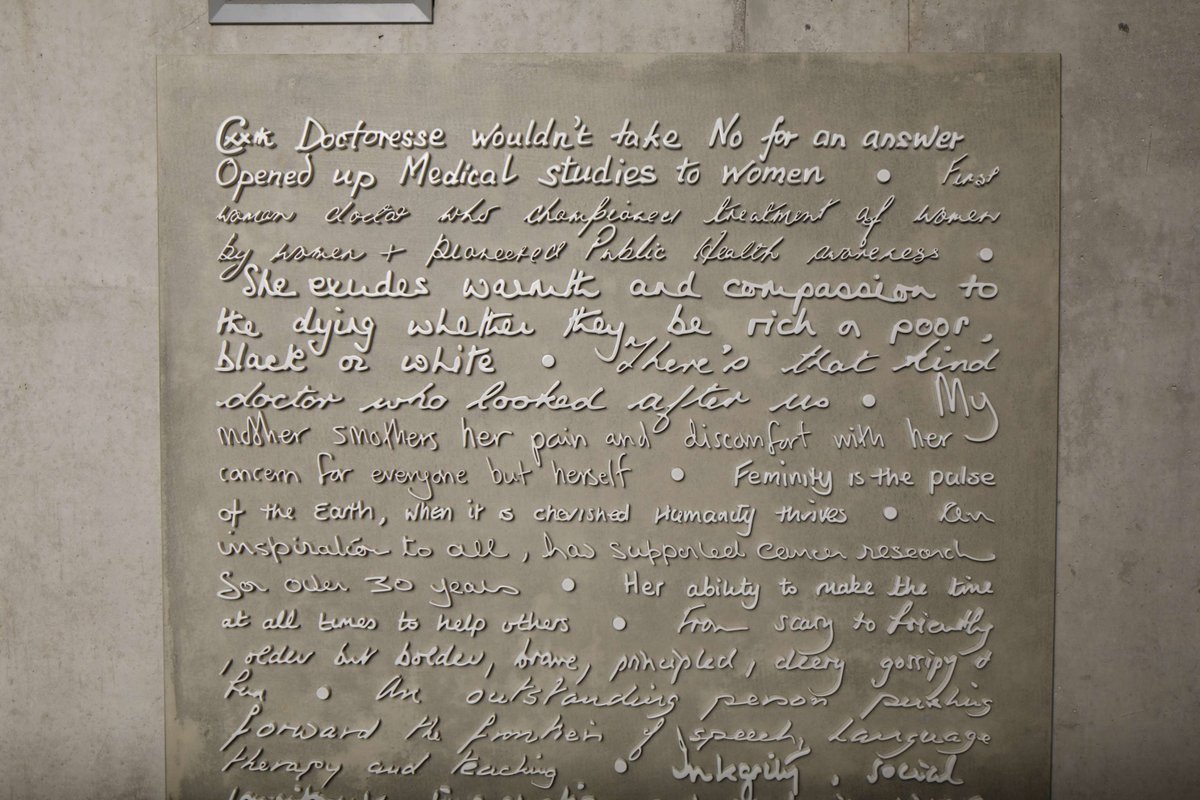 Doctoresse wouldn't take No for an answer
Opened up Medical studies to women • First
woman doctor who championed treatment of women
by women + pioneered Public Health awareness •
She exudes warmth and compassion to
the dying whether they be rich or poor,
black or white • There's that kind
doctor who looked after us • My
mother smothers her pain and discomfort with her
concern for everyone but herself • Feminity is the pulse
of the Earth, when it is cherished Humanity thrives • An
inspiration to all, has supported cancer research
for over 30 years • Her ability to make the time
at all times to help others • From scary to friendly
, older but bolder, brave, principled, gossipy &
fun • An outstanding person pushing
forward the frontiers of speech, language
therapy and teaching • Integrity, social